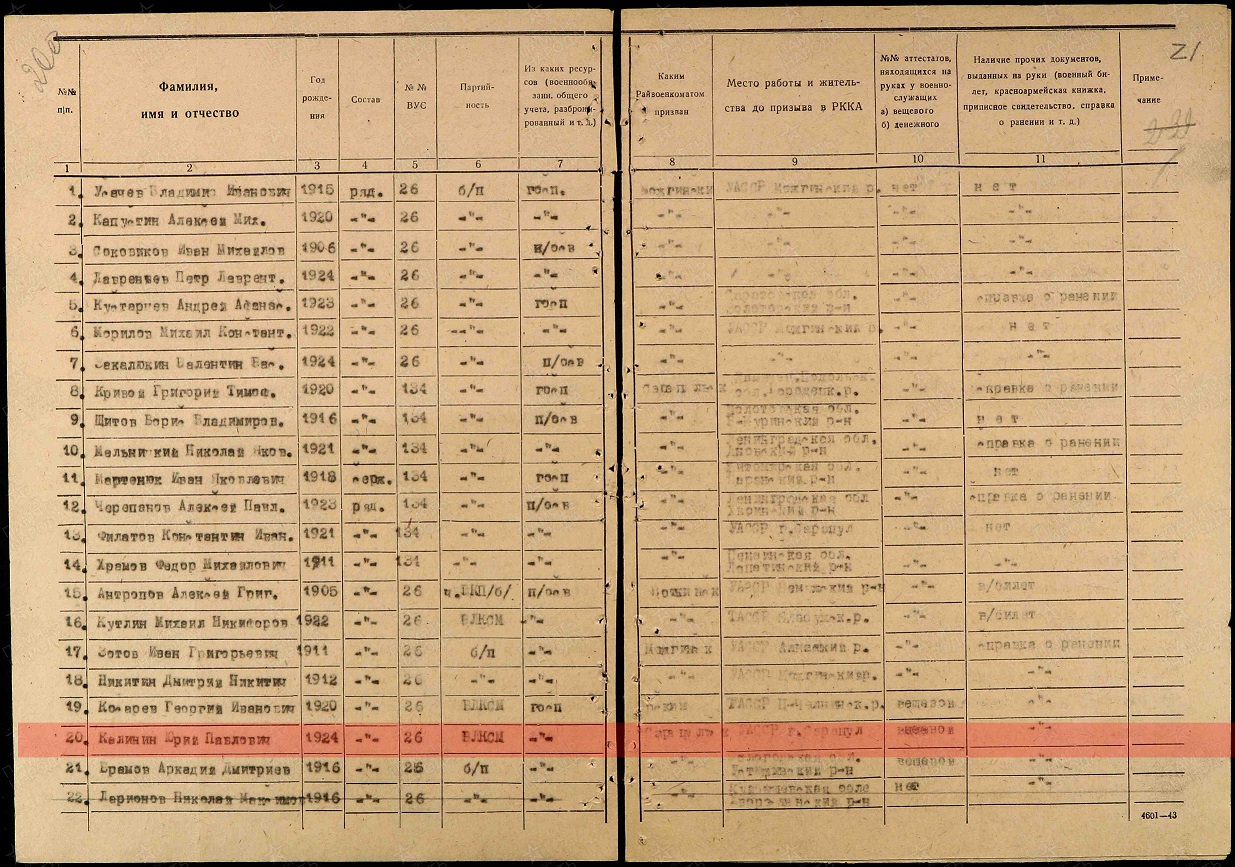 200
21
№№ п/п.
Фамилия,
имя и отчество
Год
рожде-
ния
Состав
№ №
ВУС
Партий-
ность
Из каких ресур-
сов (военнообя-
занн. общего
учета, разброни-
рованный и т. д.)
Каким
Райвоенкоматом
призван
Место работы и житель-
ства до призыва в РККА
№№ аттестатов,
находящихся на
руках у военно-
служащих
а) вещевого
б) денежного
Наличие прочих документов,
выданных на руки (военный би-
лет, красноармейская книжка,
приписное свидетельство, справка
о ранении и т. д.)
Приме-
чание
1 2 3 4 5 6 7 8 9 10 11
1. Владимир Иванович 1915 ряд. 26 б/п госп. Можгински УАССР Можгинский р. нет нет
2. Капустин Алексей Мих. 1920 -"- 26 -"- -"- -"- -"- -"- -"-
3. Соковиков Иван Михайлов 1906 -"- 26 -"- н/обв -"- -"- -"- -"-
4. Лаврентьев Петр Лаврент. 1924 -"- 26 -"- -"- -"- -"- -"- -"-
5. Андрей Афанас. 1923 -"- 26 -"- госп -"- Саратовская обл. -"- справка о ранении
Золотовский р-н
6. Морилов Михаил Констант. 1922 -"- 26 -"- -"- -"- УАССР Можгинский р. -"- нет
7. Закалюкин Валентин Вас. 1924 -"- 26 -"- п/обв -"- -"- -"- -"-
8. Кривой Григорий Тимоф. 1920 -"- 134 -"- госп Сарапульск -"- справка о ранении
обл. р.
9. Щитов Борис Владимиров. 1916 -"- 134 -"- п/обв -"- обл. нет
р-н
10. Мельницкий Николай Яков. 1921 -"- 134 -"- -"- -"- Ленинградская обл. -"- справка о ранении
р-н
11. Мартенюк Иван Яковлевич 1918 серж. 134 -"- госп -"- Житомирская обл. -"- нет
р-н
12. Черепанов Алексей Павл. 1923 ряд. 134 -"- п/обв -"- Ленинградская обл -"- справка о ранении
р-н
13. Филатов Константин Иван. 1921 -"- 134 -"- -"- -"- УАССР г. Сарапул -"- нет
14. Храмов Федор Михайлович 1911 -"- 134 -"- -"- -"- Пензинская обл. -"- -"-
Лопатинский р-н
15. Антропов Алексей Григ. 1905 -"- 26 ч.ВКП/б/ п/обв р-н -"- в/билет
16. Кутлин Михаил Никифоров 1922 -"- 26 ВЛКСМ -"- -"- ТАССР р. -"- в/билет
17. Зотов Иван Григорьевич 1911 -"- 26 б/п -"- Можгинск УАССР Алнашкий р. -"- справка о ранении
18. Никитин Дмитрий Никитич 1912 -"- 26 -"- -"- -"- УАССР Можгинскийр. -"- -"-
19. Косарев Георгий Иванович 1920 -"- 26 ВЛКСМ госп р. вещевой -"-
20. Калинин Юрий Павлович 1924 -"- 26 ВЛКСМ -"- Сарапульск УАССР г. Сарапул вещевой -"-
21. Аркадий Дмитриев 1916 -"- 26 б/п -"- -"- Вологодская обл. вещевой -"-
р-н
22. Ларионов Николай Максимов 1916 -"- 26 -"- -"- -"- нет -"-
р-н
4601—43